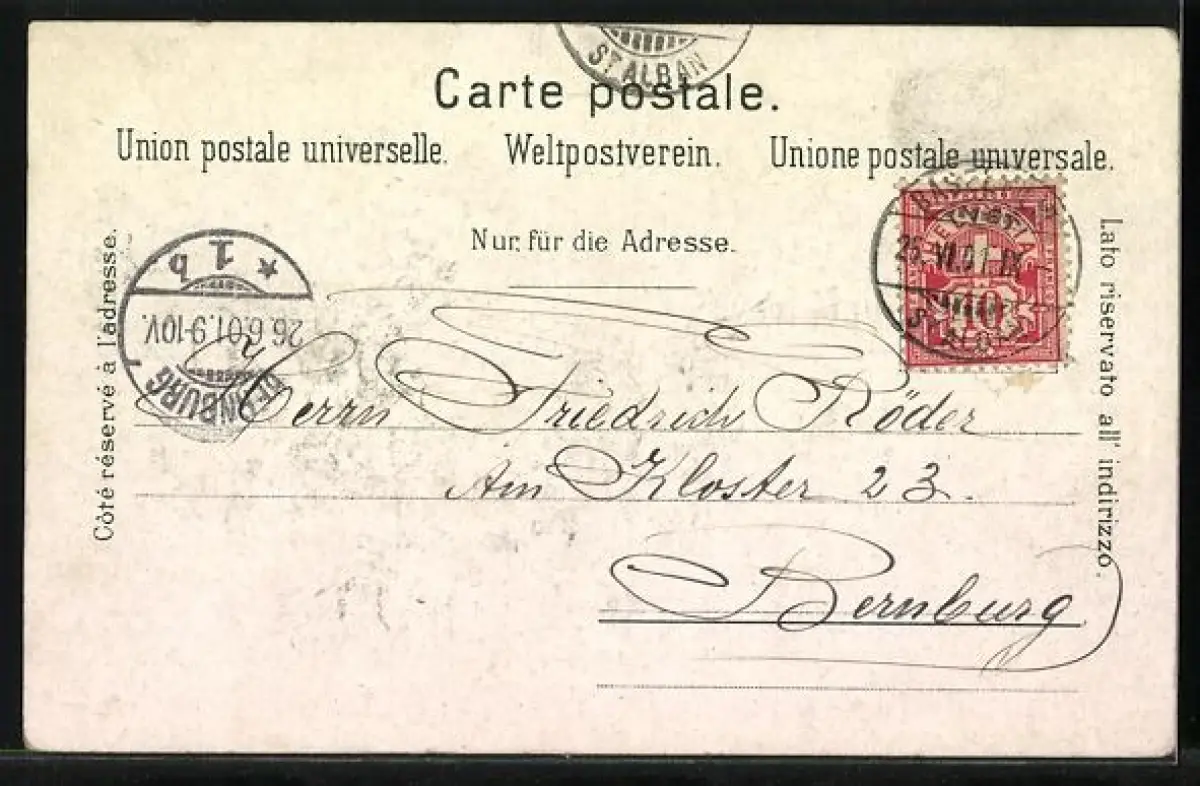 ST. ALBAN
Carte postale.
Union postale universelle. Weltpostverein. Unione postale universale.
Nur für die Adresse.
Côté réservé à l'adresse.
Lato riservato all' indirizzo.
BASEL
25.VI.01.IX
HELVETIA
10
ST. ALBAN
* 1 b
26.6.01.9-10V.
BERNBURG
Herrn Friedrich Röder
Am Kloster 23.
Bernburg